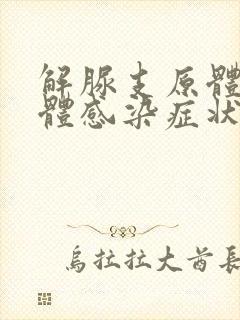 解脲支原體
體感染症狀
烏拉拉大酋長